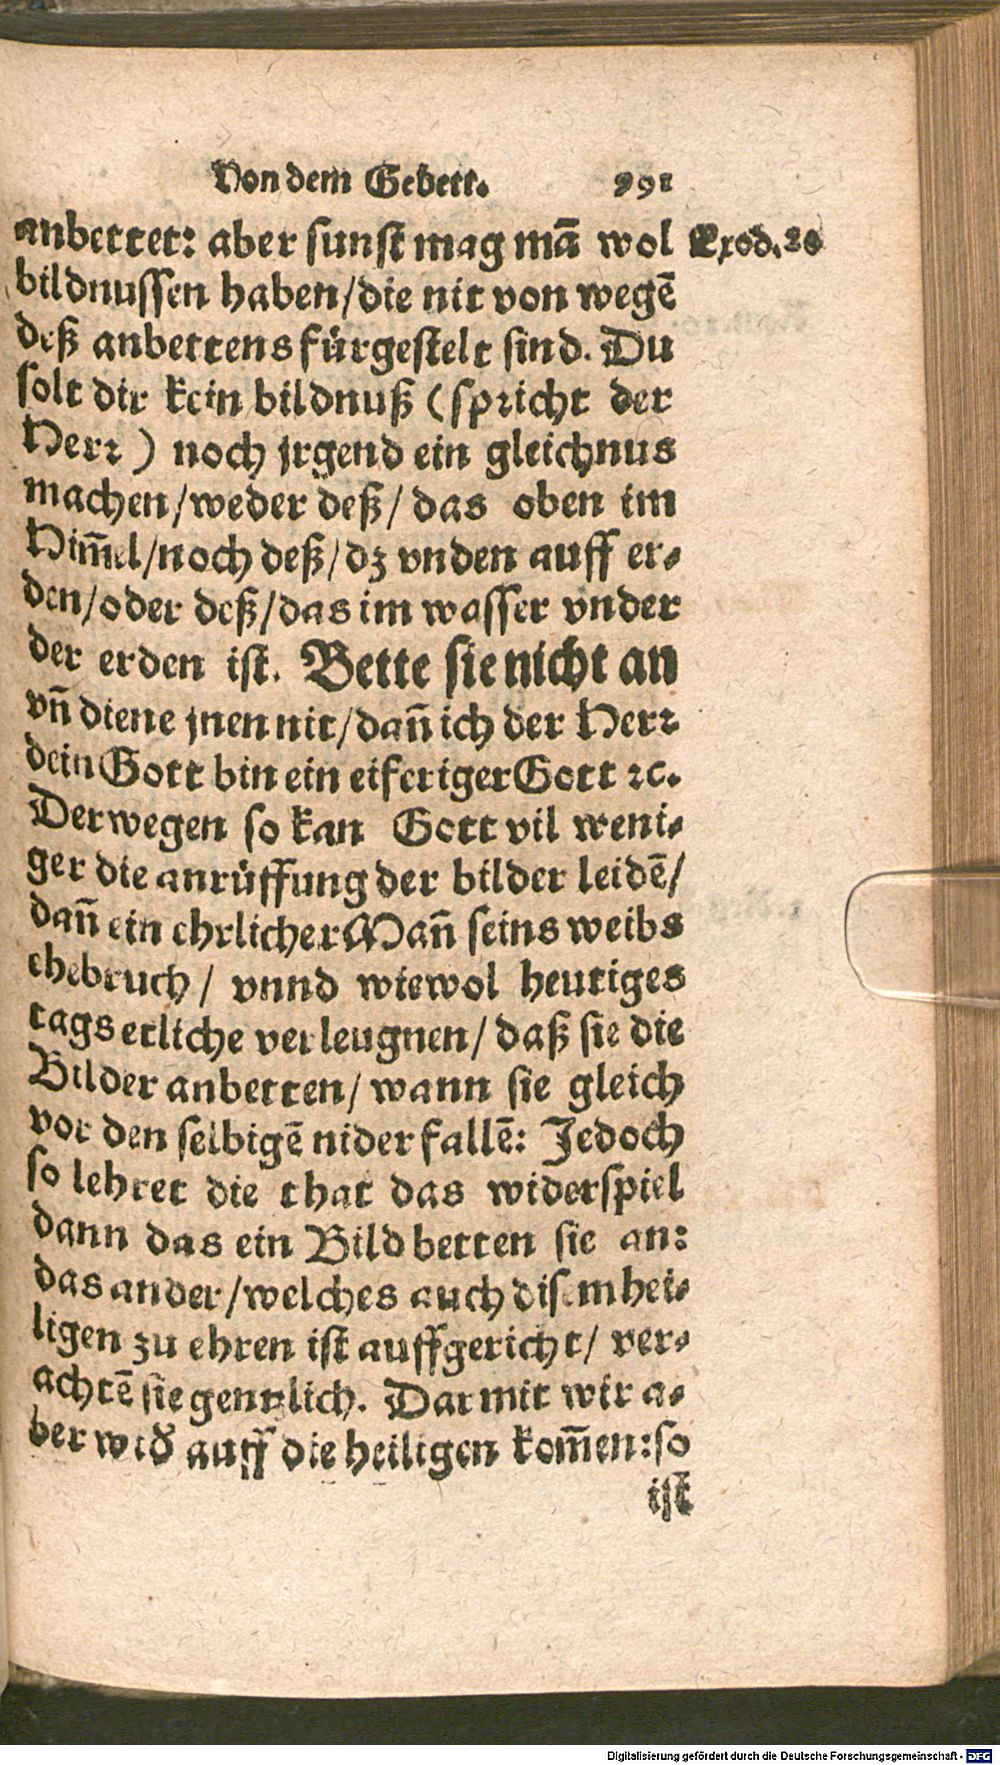 Von dem Gebett. 991
anbettet: aber sunst mag mā wol Exod. 20
bildnussen haben/die nit von wegē
deß anbettens fürgestelt sind. Du
solt dir kein bildnuß (spricht der
Herr) noch jrgend ein gleichnus
machen/weder deß/ das oben im
Him̄el/noch deß/dz vnden auff er-
den/oder deß/das im wasser vnder
der erden ist. Bette sie nicht an
vn̄ diene jnen nit/dan̄ ich der Herr
dein Gott bin ein eiferiger Gott ꝛc.
Derwegen so kan Gott vil weni-
ger die anrüffung der bilder leidē/
dan̄ ein ehrlicher Man̄ seins weibs
ehebruch/ vnnd wiewol heutiges
tags etliche verleugnen/ daß sie die
Bilder anbetten/ wann sie gleich
vor den selbigē nider fallē: Jedoch
so lehret die that das widerspiel
dann das ein Bild betten sie an:
das ander/welches auch disem hei-
ligen zu ehren ist auffgericht/ ver-
achtē sie gentzlich. Darmit wir a-
ber wid̄ auff die heiligen kom̄en: so
ist
Digitalisierung gefördert durch die Deutsche Forschungsgemeinschaft - DFG